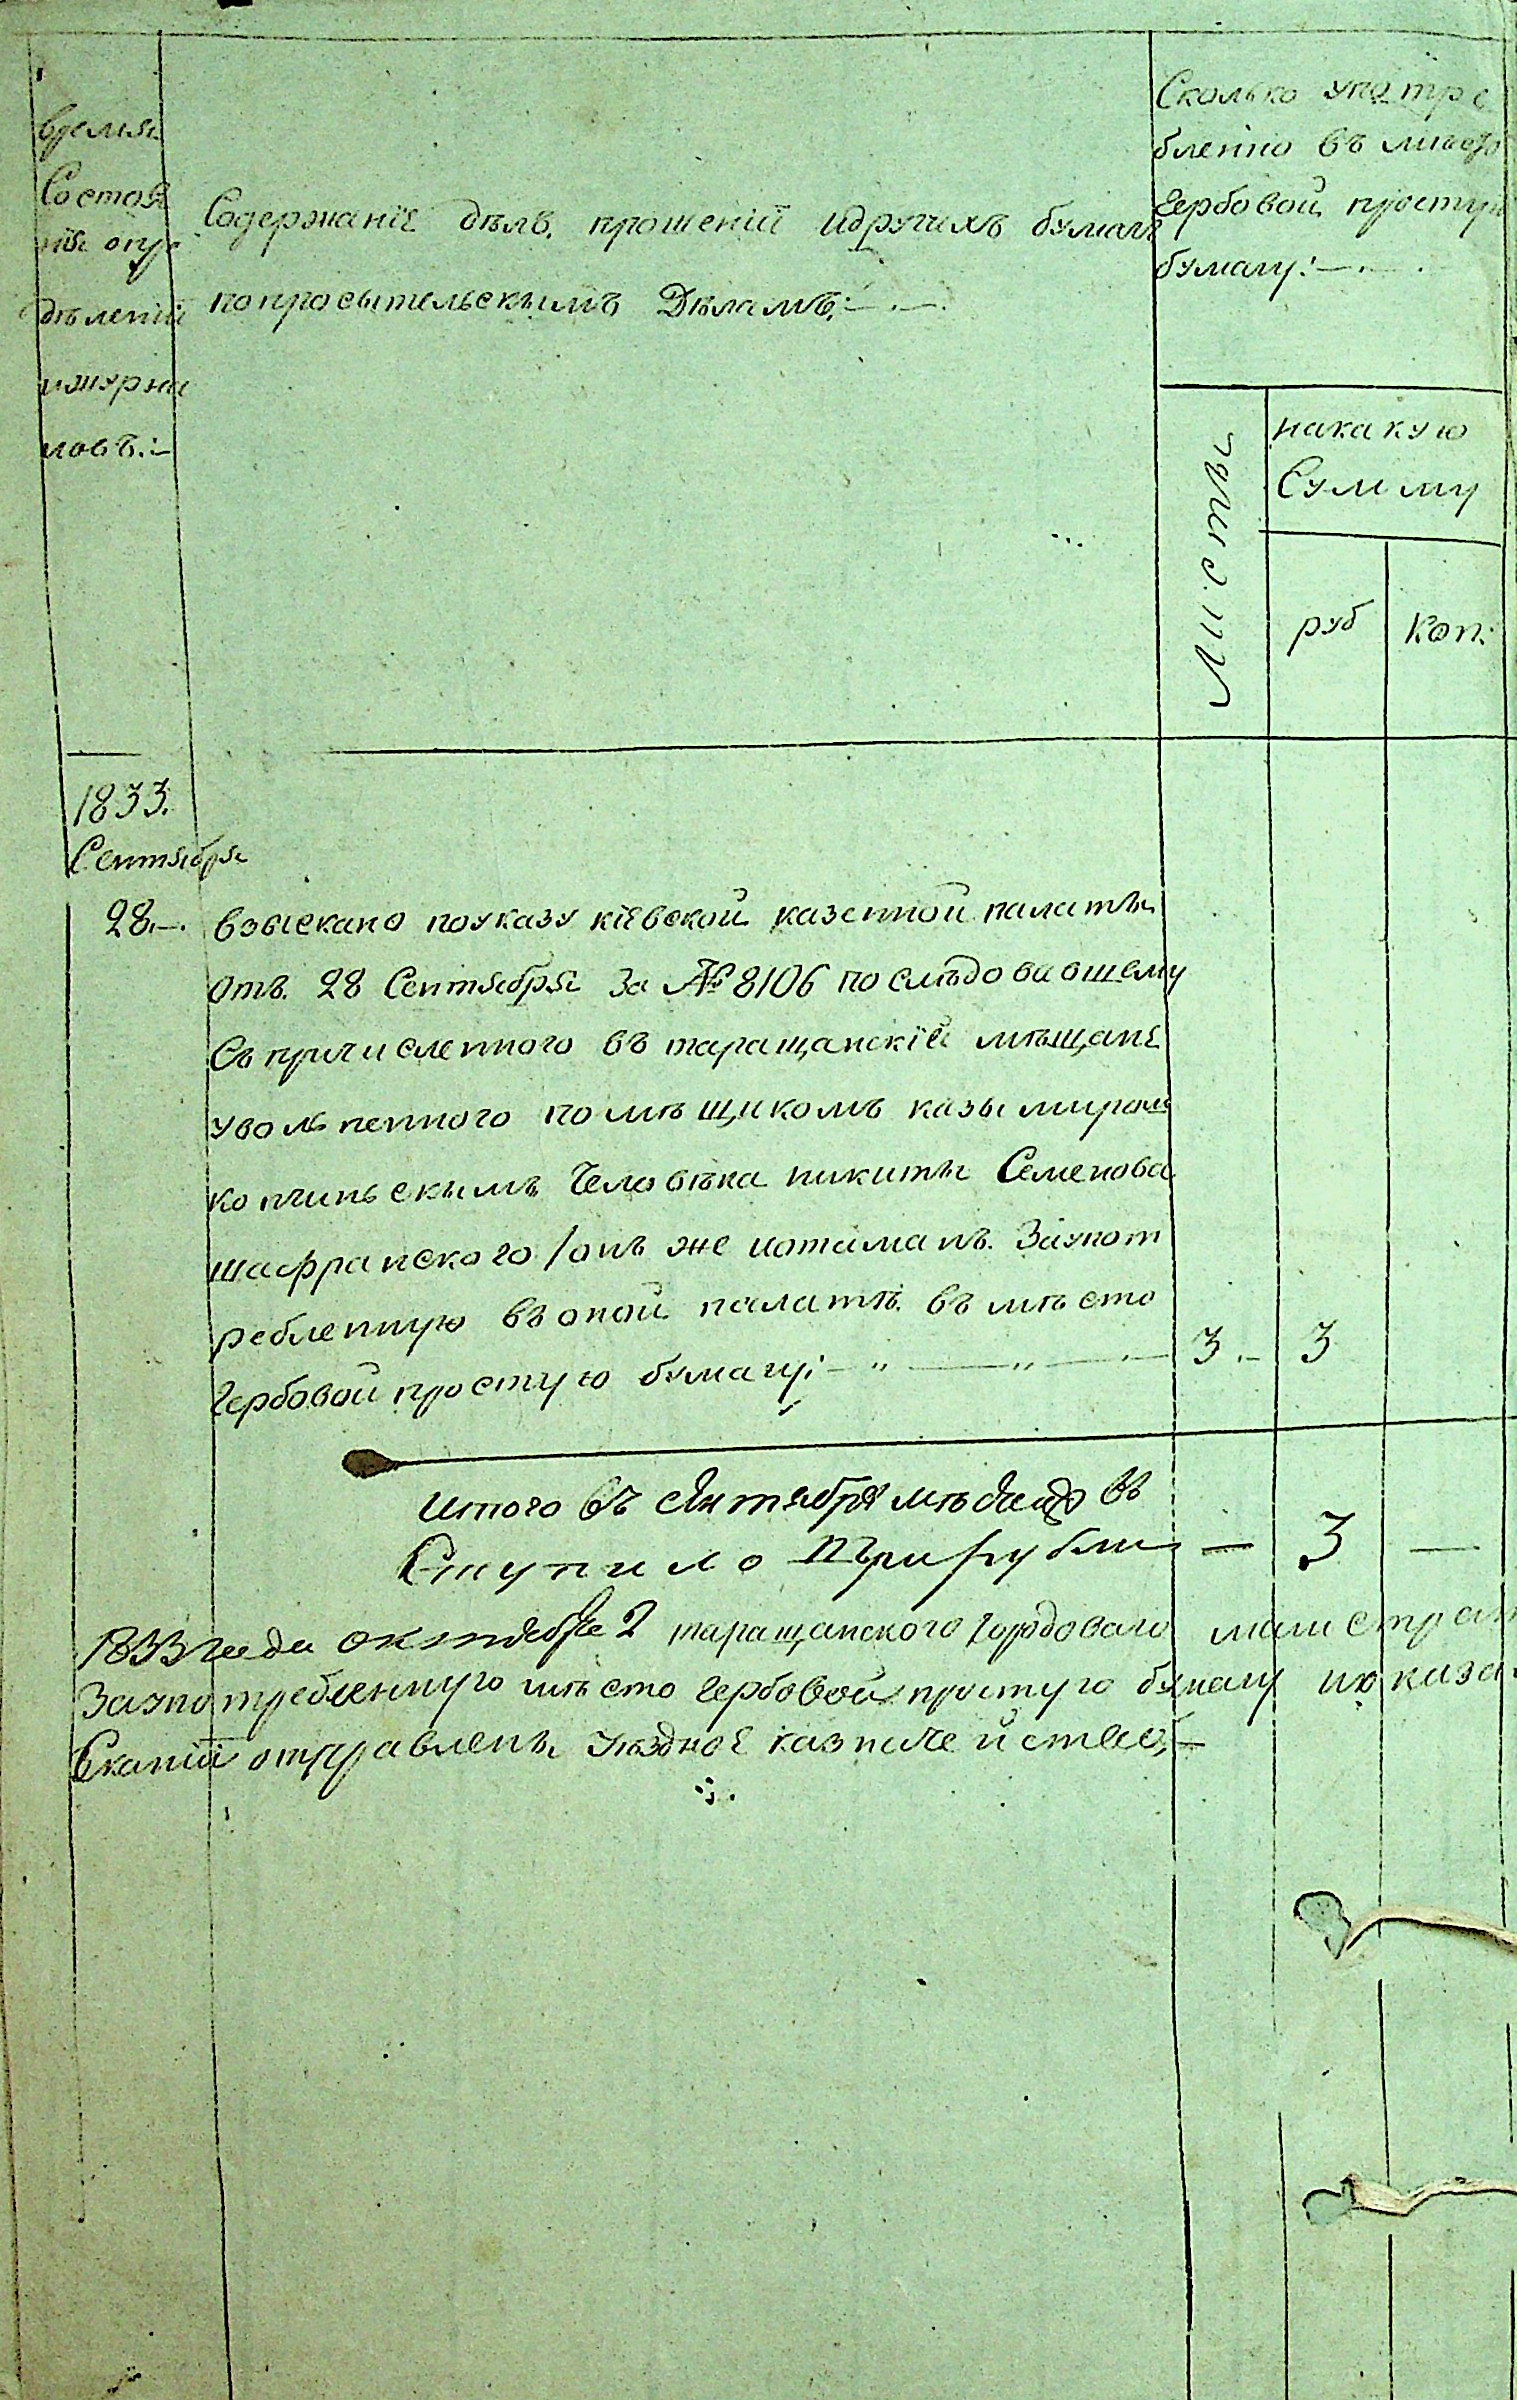 Время
Состоя
нія опре
дѣленій
ижурна
ловъ:-
Содержаніе дѣлъ, прошеній идругихъ бумагъ
попросытельскымъ Дѣламъ:-.-.
Сколько употре
бленно въ мѣсто
гербовой простую
бумагу:-.-.
Листы
накакую
Сумму
руб
коп:
1833.
Сентября
28.-. взыскано поуказу кіевской казенной палаты
отъ 28 Сентября за № 8106 последовавшему
Съ причисленного въ таращанскіе мѣщане
уволненного помѣщикомъ казымиром
копчинскымъ Человѣка никиты Семенова
шафранского / онъ же потаманъ. Заупот
ребленную въ оной палатѣ въ мѣсто
гербовой простую бумагу:- „ - „ - 3.- 3
итого въ сентябрѣ мѣсяцѣ въ
Ступило три рубли - 3 -
1833 года октября 2 таращанского городоваго магистрат
Заупотребленную мѣсто гербовой простую бумагу
отправлены уѣздное казначейство,-